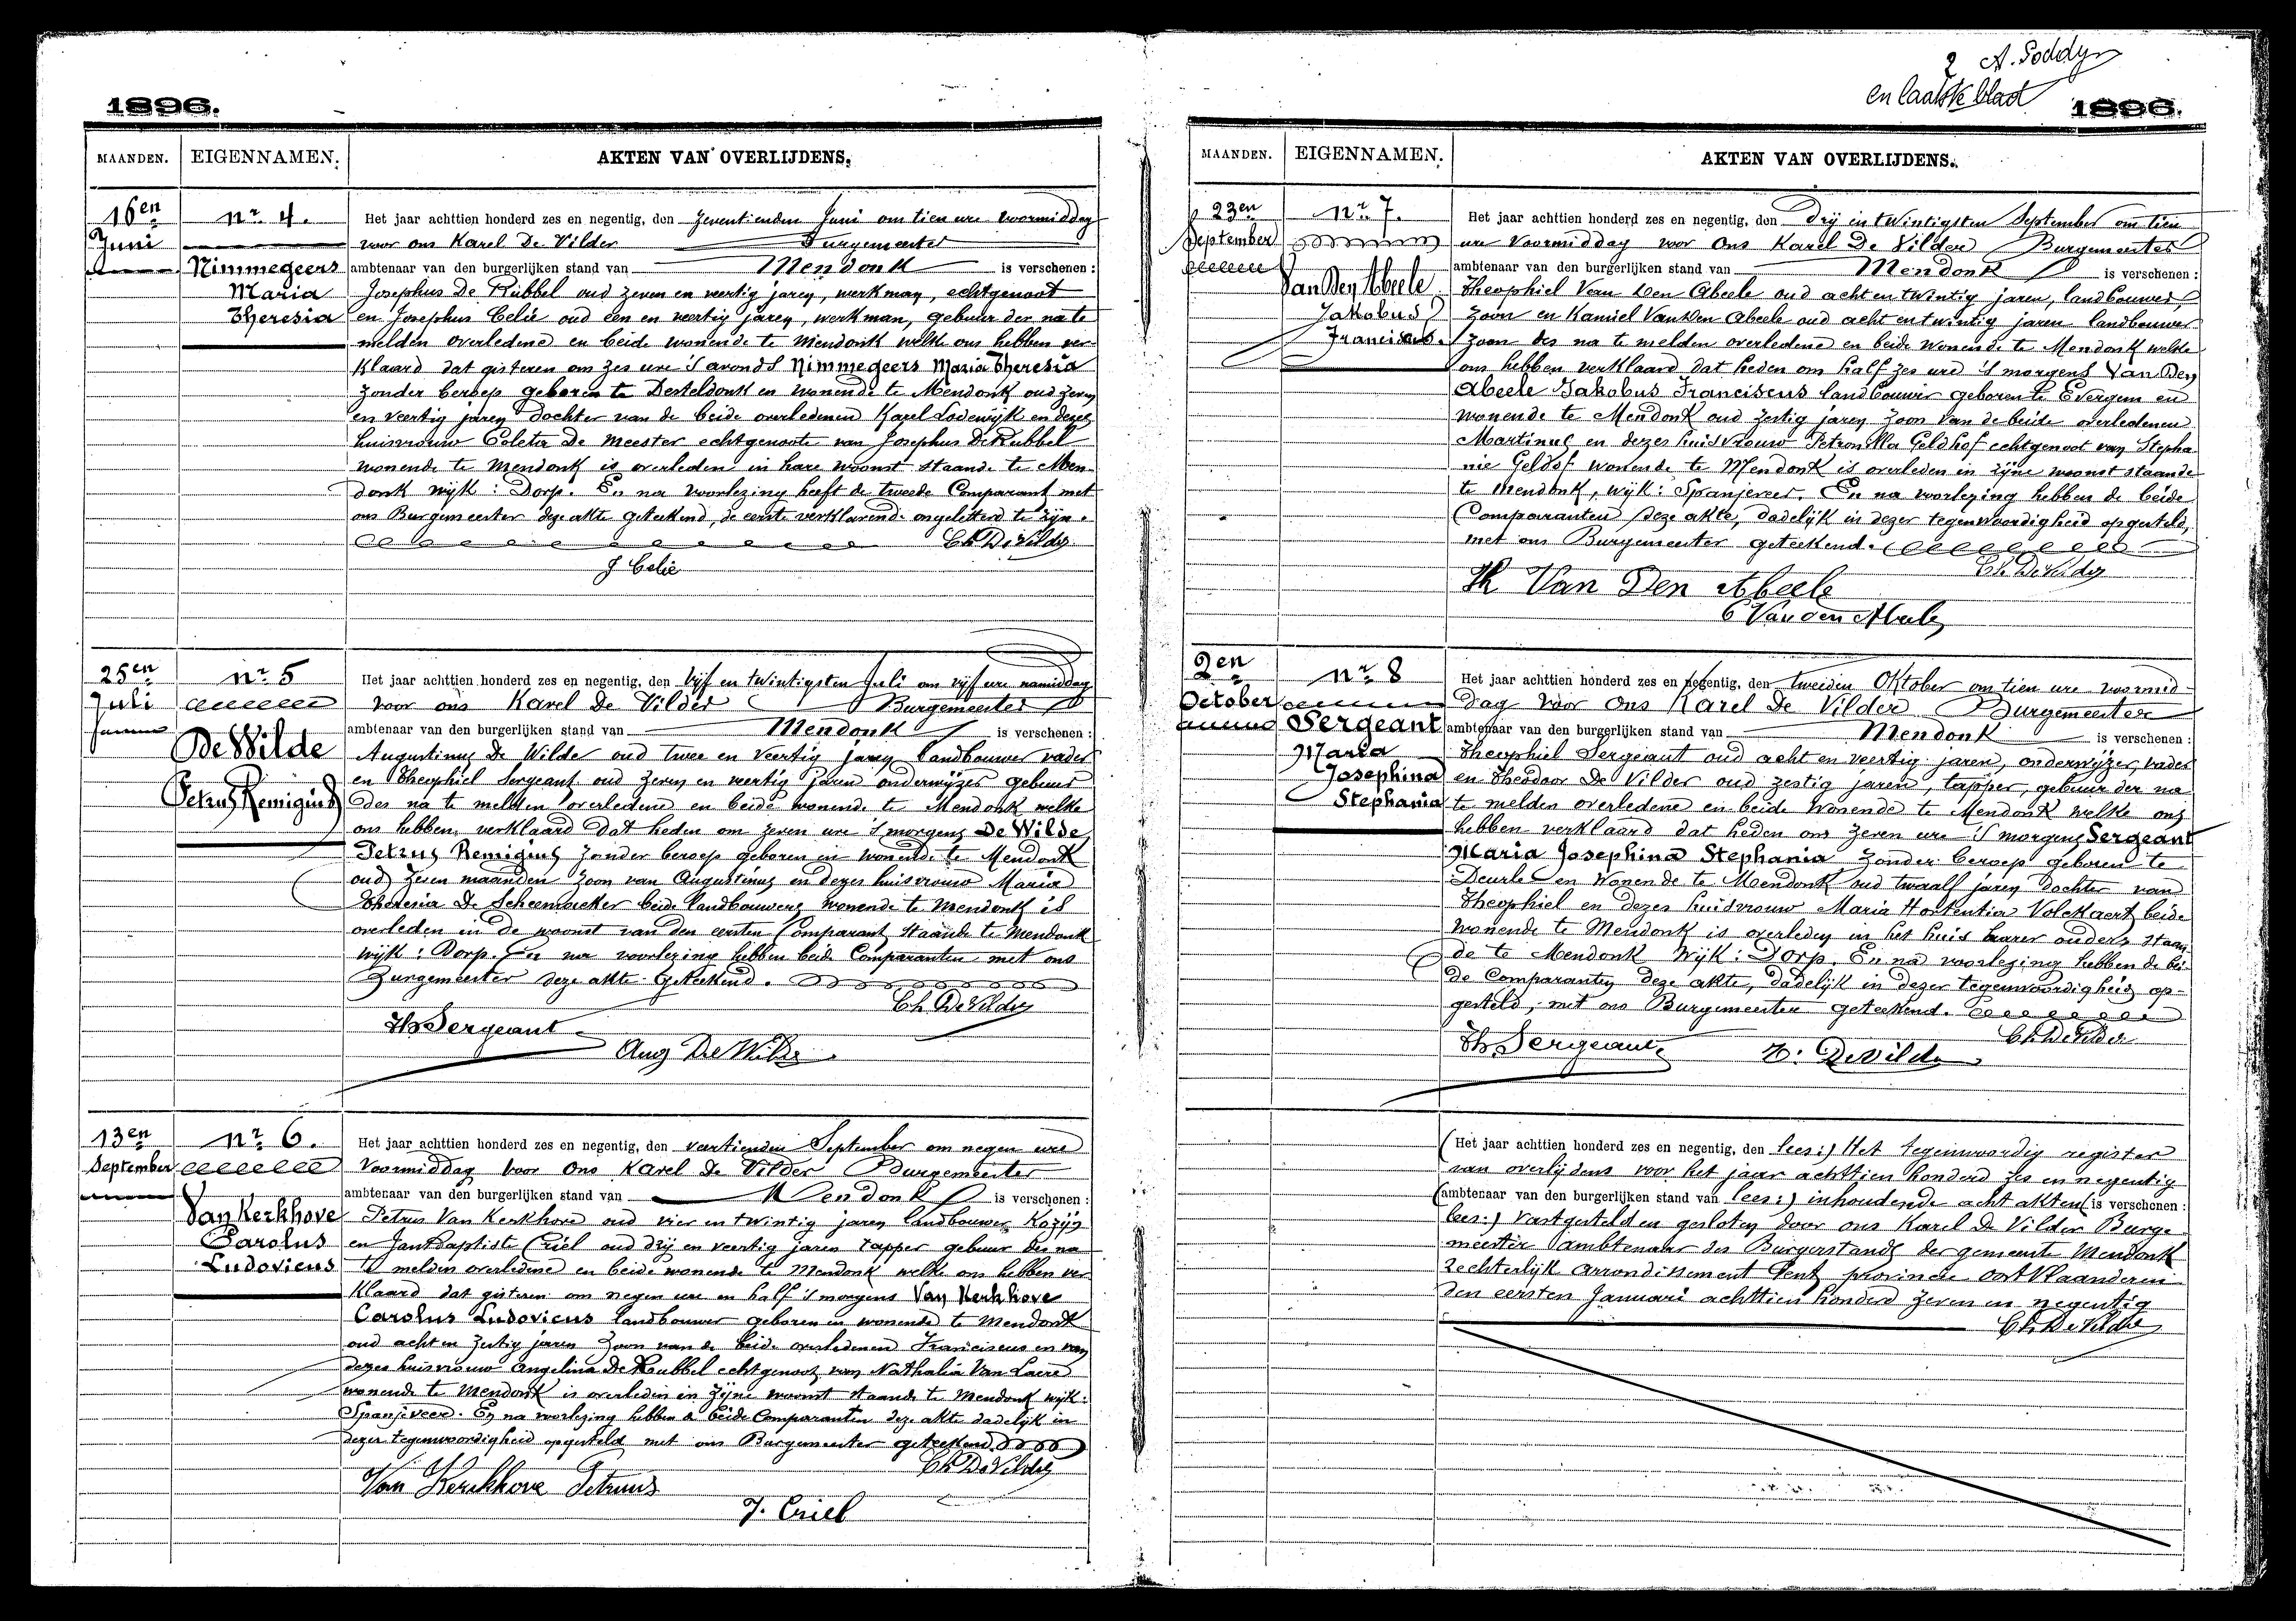 1896.
MAANDEN. EIGENNAMEN. AKTEN VAN OVERLIJDENS.
16en Juni
nr 4.
Nimmegeers
Maria
Theresia
Het jaar achttien honderd zes en negentig, den zeventienden Juni om tien ure voormiddag
voor ons Karel De Vilder Burgemeester
ambtenaar van den burgerlijken stand van Mendonk is verschenen:
Josephus De Rübbel oud zeven en veertig jaren, werkman, echtgenoot
en Josephus Celie oud een en veertig jaren, werkman, gebuur der na te
melden overledene en beide wonende te Mendonk welke ons hebben ver
klaard dat gisteren om zes ure 's avonds Nimmegeers Maria Theresia
zonder beroep geboren te Desteldonk en wonende te Mendonk oud zeven
en veertig jaren dochter van de beide overledenen Karel Lodewijk en dezes
huisvrouw Coleta De Meester echtgenoote van Josephus De Rubbel
wonende te Mendonk is overleden in hare woonst staande te Men
donk wijk: Dorp. En na voorlezing heeft de tweede Comparant met
ons Burgemeester deze akte geteekend, de eerste verklarende ongeletterd te zijn.
Ch De Vilder
J Celie
25en
Juli
nr 5
De Wilde
Petrus Remigius
Het jaar achttien honderd zes en negentig, den vijf en twintigsten Juli om vijf ure namiddag
voor ons Karel De Vilder Burgemeester
ambtenaar van den burgerlijken stand van Mendonk is verschenen:
Augustinus De Wilde oud twee en veertig jaren landbouwer vader
en Theophiel Sergeant oud zeven en veertig jaren onderwijzer gebuur
des na te melden overledene en beide wonende te Mendonk welke
ons hebben verklaard dat heden om zeven ure 's morgens De Wilde
Petrus Remigius zonder beroep geboren en wonende te Mendonk
oud zeven maanden zoon van Augustinus en dezes huisvrouw Maria
Theresia De Scheemaeker beide landbouwers wonende te Mendonk is
overleden in de woonst van den eersten Comparant staande te Mendonk
wijk: Dorp. En na voorlezing hebben beide Comparanten met ons
Burgemeester deze akte geteekend.
Ch De Vilder
Th Sergeant
Aug De Wilde
13en
September
nr 6.
Van Kerkhove
Carolus
Ludovicus
Het jaar achttien honderd zes en negentig, den veertienden September om negen ure
voormiddag voor ons Karel De Vilder Burgemeester
ambtenaar van den burgerlijken stand van Mendonk is verschenen:
Petrus Van Kerkhove oud vier en twintig jaren landbouwer Kozijn
en Jan Baptiste Criel oud drij en veertig jaren tapper gebuur des na
te melden overledene en beide wonende te Mendonk welke ons hebben ver
klaard dat gisteren om negen ure en half 's morgens Van Kerkhove
Carolus Ludovicus landbouwer geboren en wonende te Mendonk
oud acht en zestig jaren zoon van de beide overledenen Franciscus en van
dezes huisvrouw Angelina De Reubbel echtgenoot van Nathalia Van Laere
wonende te Mendonk is overleden in zijne woonst staande te Mendonk wijk:
Spanjeveer. En na voorlezing hebben de beide Comparanten deze akte dadelijk in
dezer tegenwoordigheid opgesteld met ons Burgemeester geteekend.
Ch De Vilder
Van Kerckhove Petrus
J. Criel
2
en laatste blad
1896.
MAANDEN. EIGENNAMEN. AKTEN VAN OVERLIJDENS.
23en
September
nr 7.
Van Den Abeele
Jakobus
Franciscus.
Het jaar achttien honderd zes en negentig, den Drij en twintigsten September om tien
ure voormiddag voor ons Karel De Vilder Burgemeester
ambtenaar van den burgerlijken stand van Mendonk is verschenen:
Theophiel Van Den Abeele oud acht en twintig jaren, landbouwer
zoon en Kamiel Van Den Abeele oud acht en twintig jaren landbouwer
zoon des na te melden overledene en beide wonende te Mendonk welke
ons hebben verklaard dat heden om half zes ure 's morgens Van Den
Abeele Jakobus Franciscus landbouwer geboren te Evergem en
wonende te Mendonk oud zestig jaren zoon van de beide overledenen
Martinus en dezes huisvrouw Petronilla Geldhof echtgenoot van Stepha
nie Geldof wonende te Mendonk is overleden in zijne woonst staande
te Mendonk, wijk: Spanjeveer. En na voorlezing hebben de beide
Comparanten deze akte, dadelijk in dezer tegenwoordigheid opgesteld,
met ons Burgemeester geteekend.
Ch. De Vilder
Th Van Den Abeele
C Van den Abeele
2en
October
nr 8
Sergeant
Maria
Josephina
Stephania
Het jaar achttien honderd zes en negentig, den tweeden Oktober om tien ure voormid
dag voor ons Karel De Vilder Burgemeester
ambtenaar van den burgerlijken stand van Mendonk is verschenen:
Theophiel Sergeant oud acht en veertig jaren, onderwijzer, vader
en Theodoor De Vilder oud zestig jaren, tapper, gebuur der na
te melden overledene en beide wonende te Mendonk welke ons
hebben verklaard dat heden om zeven ure 's morgens Sergeant
Maria Josephina Stephania zonder beroep geboren te
Deurle en wonende te Mendonk oud twaalf jaren dochter van
Theophiel en dezes huisvrouw Maria Hortentia Volckaert beide
wonende te Mendonk is overleden in het huis harer ouders staan
de te Mendonk wijk: Dorp. En na voorlezing hebben de bei
de Comparanten deze akte, dadelijk in dezer tegenwoordigheid op-
gesteld, met ons Burgemeester geteekend.
Ch. De Vilder
Th Sergeant
T. De Vilder
(Het jaar achttien honderd zes en negentig, den lees:) Het tegenwoordig register
van overlijdens voor het jaar achttien honderd zes en negentig
(ambtenaar van den burgerlijken stand van lees:) inhoudende acht akten (is verschenen:
lees:) vastgesteld en gesloten door ons Karel De Vilder Burge
meester ambtenaar des Burgerstands der gemeente Mendonk
rechterlijk arrondissement Gent provincie Oost Vlaanderen
den eersten Januari achttien honderd zeven en negentig
Ch. De Vilder